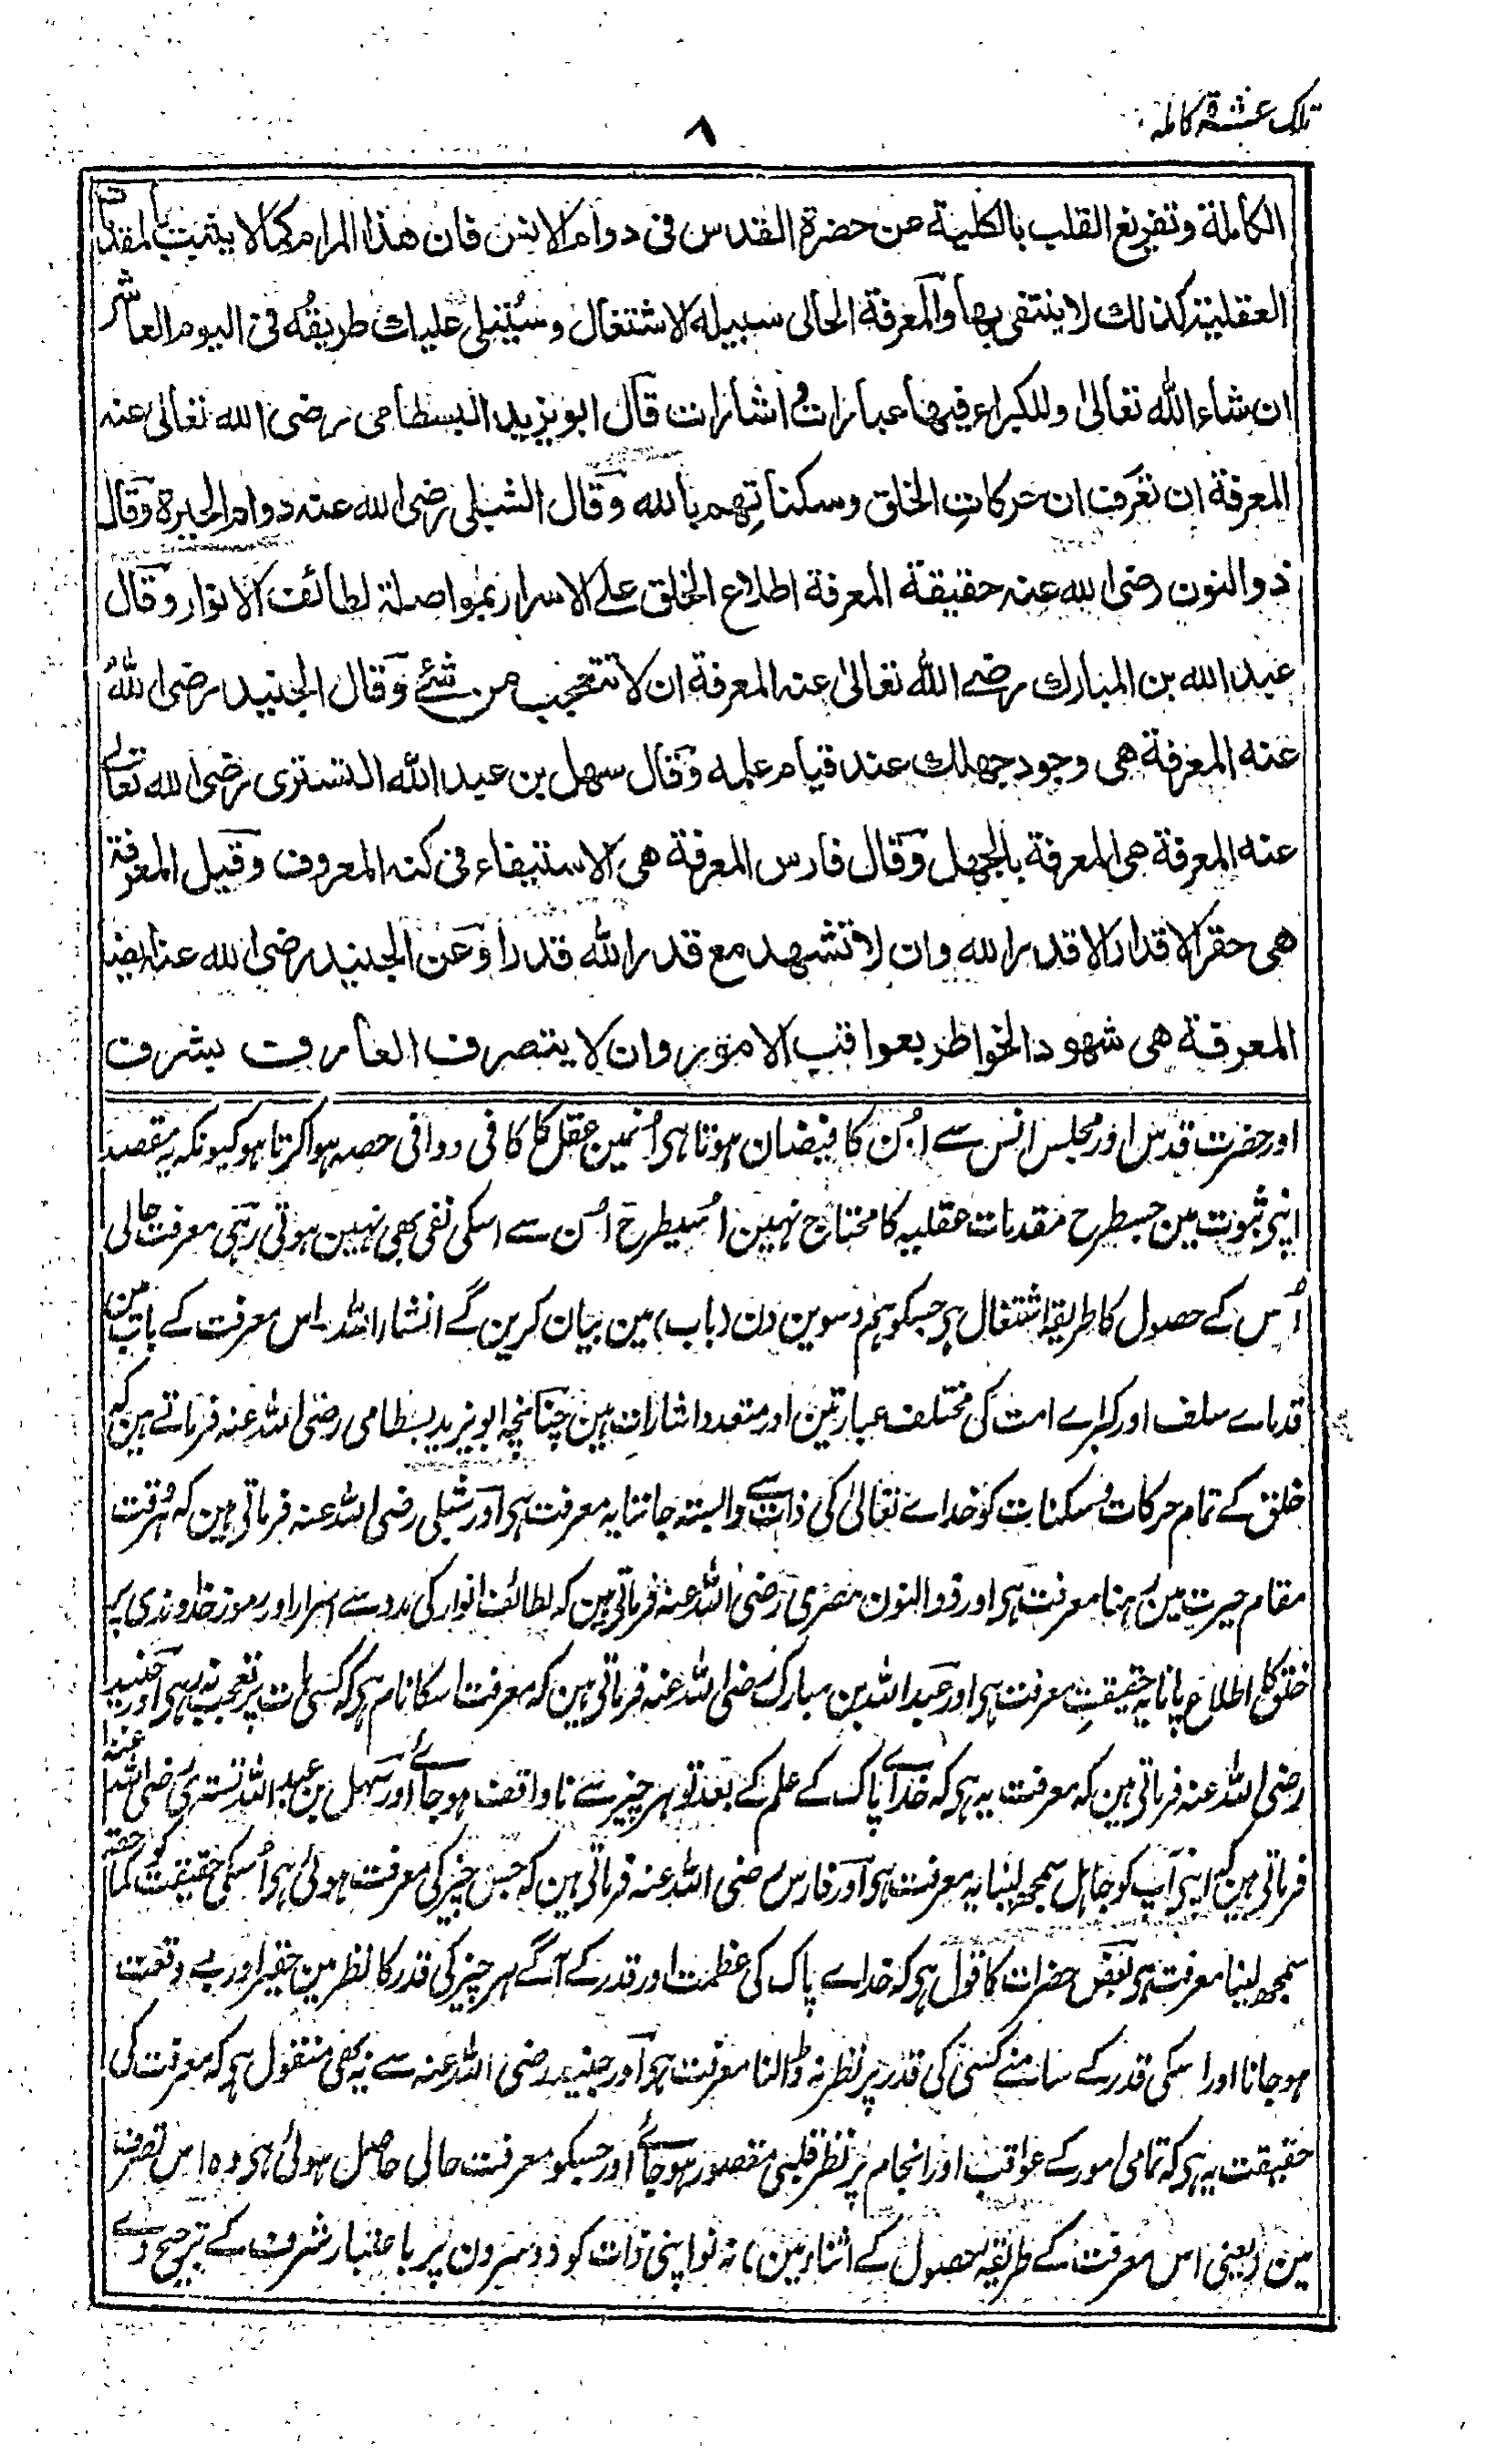 تلک عشرة کاملہ
۸
الکاملة وتفریغ القلب بالکلیة من حضرة القدس فی دوام الانس فان هذا المرام کما لا یثبت بالمقدمات
العقلیة کذلك لا ینتفی بها والمعرفة الحالی سبیله الاشتغال وسیُتلی علیك طریقُه فی الیوم العاشر
ان شاء الله تعالیٰ وللکبراء فیها عبارات واشارات قال ابو یزید البسطامی رضی الله تعالیٰ عنه
المعرفة ان تعرف ان حرکاتِ الخلق وسکناتِهم بالله وقال الشبلی رضی الله عنه دوام الحیرة وقال
ذو النون رضی الله عنه حقیقة المعرفة اطلاع الخلق علی الاسرار بمواصلة لطائف الانوار وقال
عبد الله بن المبارك رضے الله تعالیٰ عنه المعرفة ان لا تتعجب من شئے وقال الجنید رضی اللهُ
عنه المعرفة هی وجود جهلك عند قیام علمه وقال سهل بن عبد الله التستری رضی الله تعالے
عنه المعرفة هی المعرفة بالجهل وقال فارس المعرفة هی الاستیفاء فی کنه المعروف وقیل المعرفة
هی حقر الاقدار الا قدر الله وان لا تشهد مع قدر الله قدرا وعن الجنید رضی الله عنه ایضا
المعرفة هی شهود الخواطر بعواقب الامور وان لا یتصرف العارف بشرف
اور حضرت قدس اور مجلس انس سے اُن کا فیضان ہوتا ہی اُنمین عقل کل کافی ووافی حصہ ہوا کرتا ہو کیونکہ یہ مقصد
اپنی ثبوت مین جسطرح مقدمات عقلیہ کا محتاج نہین اُسیطرح اُن سے اسکی نفی بھی نہین ہوتی رہی معرفت حالی
اُس کے حصول کا طریقہ اشتغال ہی جسکو ہم دسوین دن (باب) مین بیان کرین گے انشاء اللہ۔ اس معرفت کے باب مین
قدماے سلف اور کبراے امت کی مختلف عبارتین اور متعدد اشارات ہین چنانچہ ابو یزید بسطامی رضی اللہ عنہ فرماتے ہین کہ
خلق کے تمام حرکات وسکنات کو خداے تعالیٰ کی ذات سے وابستہ جاننا یہ معرفت ہی اور شبلی رضی اللہ عنہ فرماتی ہین کہ ہروقت
مقام حیرت مین رہنا معرفت ہی اور ذوالنون مصری رضی اللہ عنہ فرماتی ہین کہ لطائف انوار کی مدد سے اسرار اور رموز خداوندی پر
خلق کا اطلاع پانا یہ حقیقتِ معرفت ہی اور عبد اللہ بن مبارک رضی اللہ عنہ فرماتی ہین کہ معرفت اسکا نام ہی کہ کسی بات پر تعجب نہ رہی اور جنید
رضی اللہ عنہ فرماتی ہین کہ معرفت یہ ہی کہ خداے پاک کے علم کے بعد تو ہر چیز سے ناواقف ہوجاے اور سہل بن عبد اللہ تستری رضی اللہ عنہ
فرماتی ہین کہ اپنی آپ کو جاہل سمجھ لینا یہ معرفت ہی اور فارس رضی اللہ عنہ فرماتی ہین کہ جس چیز کی معرفت ہوئی ہی اُسکی حقیقت کو کما حقہ
سمجھ لینا معرفت ہی بعض حضرات کا قول ہی کہ خداے پاک کی عظمت اور قدر کے آگے ہر چیز کی قدر کا نظر مین حقیر اور بے وقعت
ہوجانا اور اسکی قدر کے سامنے کسی کی قدر پر نظر نہ ڈالنا معرفت ہی اور جنید رضی اللہ عنہ سے یہ بھی منقول ہی کہ معرفت کی
حقیقت یہ ہی کہ تمامی امور کے عواقب اور انجام پر نظر قلبی مقصور ہوجاے اور جسکو معرفت حالی حاصل ہوئی ہی وہ اس تصرف
مین (یعنی اس معرفت کے طریقہ حصول کے اثناء مین) نہ تو اپنی ذات کو دوسرون پر باعتبار شرف کے ترجیح دے